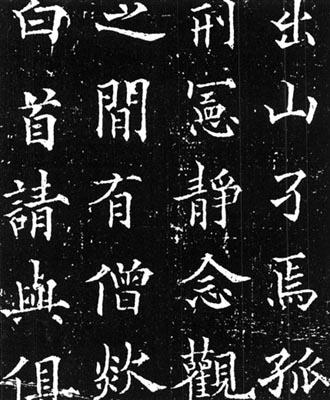 出山孑焉孤
刑憲靜念觀
之間有僧欻
白首請與俱